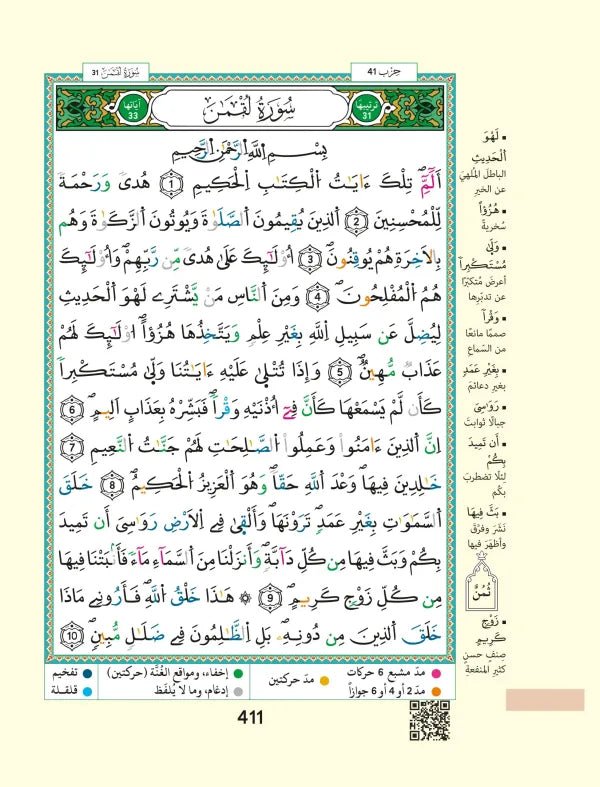 حِزْب 41
سُورَةُ لُقْمَٰن 31
تَرتيبهَا 31
سُورَةُ لُقْمَٰنَ
آيَاتهَا 33
بِسْمِ اللَّهِ الرَّحْمَٰنِ الرَّحِيمِ
أَلَٓمِّٓۖ تِلْكَ ءَايَٰتُ اُ۬لْكِتَٰبِ اِ۬لْحَكِيمِ 1 هُدىٗ وَرَحْمَةٗ
لِّلْمُحْسِنِينَ 2 اَ۬لذِينَ يُقِيمُونَ اَ۬لصَّلَوٰةَ وَيُوتُونَ اَ۬لزَّكَوٰةَ وَهُم
بِالَاخِرَةِ هُمْ يُوقِنُونَۖ 3 أُوْلَٰٓئِكَ عَلَىٰ هُدىٗ مِّن رَّبِّهِمْۖ وَأُوْلَٰٓئِكَ
هُمُ اُ۬لْمُفْلِحُونَۖ 4 وَمِنَ اَ۬لنَّاسِ مَنْ يَّشْتَرِے لَهْوَ اَ۬لْحَدِيثِ
لِيُضِلَّ عَن سَبِيلِ اِ۬للَّهِ بِغَيْرِ عِلْمٖ وَيَتَّخِذُهَا هُزُؤاًۖ اُوْلَٰٓئِكَ لَهُمْ
عَذَابٞ مُّهِينٞۖ 5 وَإِذَا تُتْلَىٰ عَلَيْهِ ءَايَٰتُنَا وَلَّىٰ مُسْتَكْبِراٗ
كَأَن لَّمْ يَسْمَعْهَا كَأَنَّ فِےٓ أُذْنَيْهِ وَقْراٗۖ فَبَشِّرْهُ بِعَذَابٍ اَلِيمٍۖ 6
اِنَّ اَ۬لذِينَ ءَامَنُواْ وَعَمِلُواْ اُ۬لصَّٰلِحَٰتِ لَهُمْ جَنَّٰتُ اُ۬لنَّعِيمِ 7
خَٰلِدِينَ فِيهَا وَعْدَ اَ۬للَّهِ حَقّاٗۖ وَهُوَ اَ۬لْعَزِيزُ اُ۬لْحَكِيمُۖ 8 خَلَقَ
اَ۬لسَّمَٰوَٰتِ بِغَيْرِ عَمَدٖ تَرَوْنَهَاۖ وَأَلْقَىٰ فِے اِ۬لَارْضِ رَوَٰسِيَ أَن تَمِيدَ
بِكُمْ وَبَثَّ فِيهَا مِن كُلِّ دَآبَّةٖۖ وَأَنزَلْنَا مِنَ اَ۬لسَّمَآءِ مَآءٗ فَأَنۢبَتْنَا فِيهَا
مِن كُلِّ زَوْجٖ كَرِيمٍۖ 9 ۞ هَٰذَا خَلْقُ اُ۬للَّهِۖ فَأَرُونِے مَاذَا
خَلَقَ اَ۬لذِينَ مِن دُونِهِۦۖ بَلِ اِ۬لظَّٰلِمُونَ فِے ضَلَٰلٖ مُّبِينٖۖ 10
▪ لَهْوَ
اَ۬لْحَدِيثِ
الباطلَ المُلهِيَ
عن الخير
▪ هُزُؤاً
سُخريةً
▪ وَلَّىٰ
مُسْتَكْبِراٗ
أعرضَ مُتكبّرًا
عن تدبّرِها
▪ وَقْراٗ
صممًا مانعًا
من السّماع
▪ بِغَيْرِ عَمَدٖ
بغيرِ دعائمَ
▪ رَوَٰسِيَ
جبالًا ثوابتَ
▪ أَن تَمِيدَ
بِكُمْ
لِئلَّا تضطربَ
بكُم
▪ بَثَّ فِيهَا
نَشَرَ وفرَّقَ
وأظهَرَ فيها
ثُمُن
▪ زَوْجٖ
كَرِيمٍ
صِنفٍ حسنٍ
كثيرِ المنفعة
مدّ مشبع 6 حركات
مدّ حركتين
إخفاء، ومواقع الغُنَّة (حركتين)
تفخيم
مدّ 2 أو 4 أو 6 جوازاً
إدغام، وما لا يُلفَظ
قلقلة
411